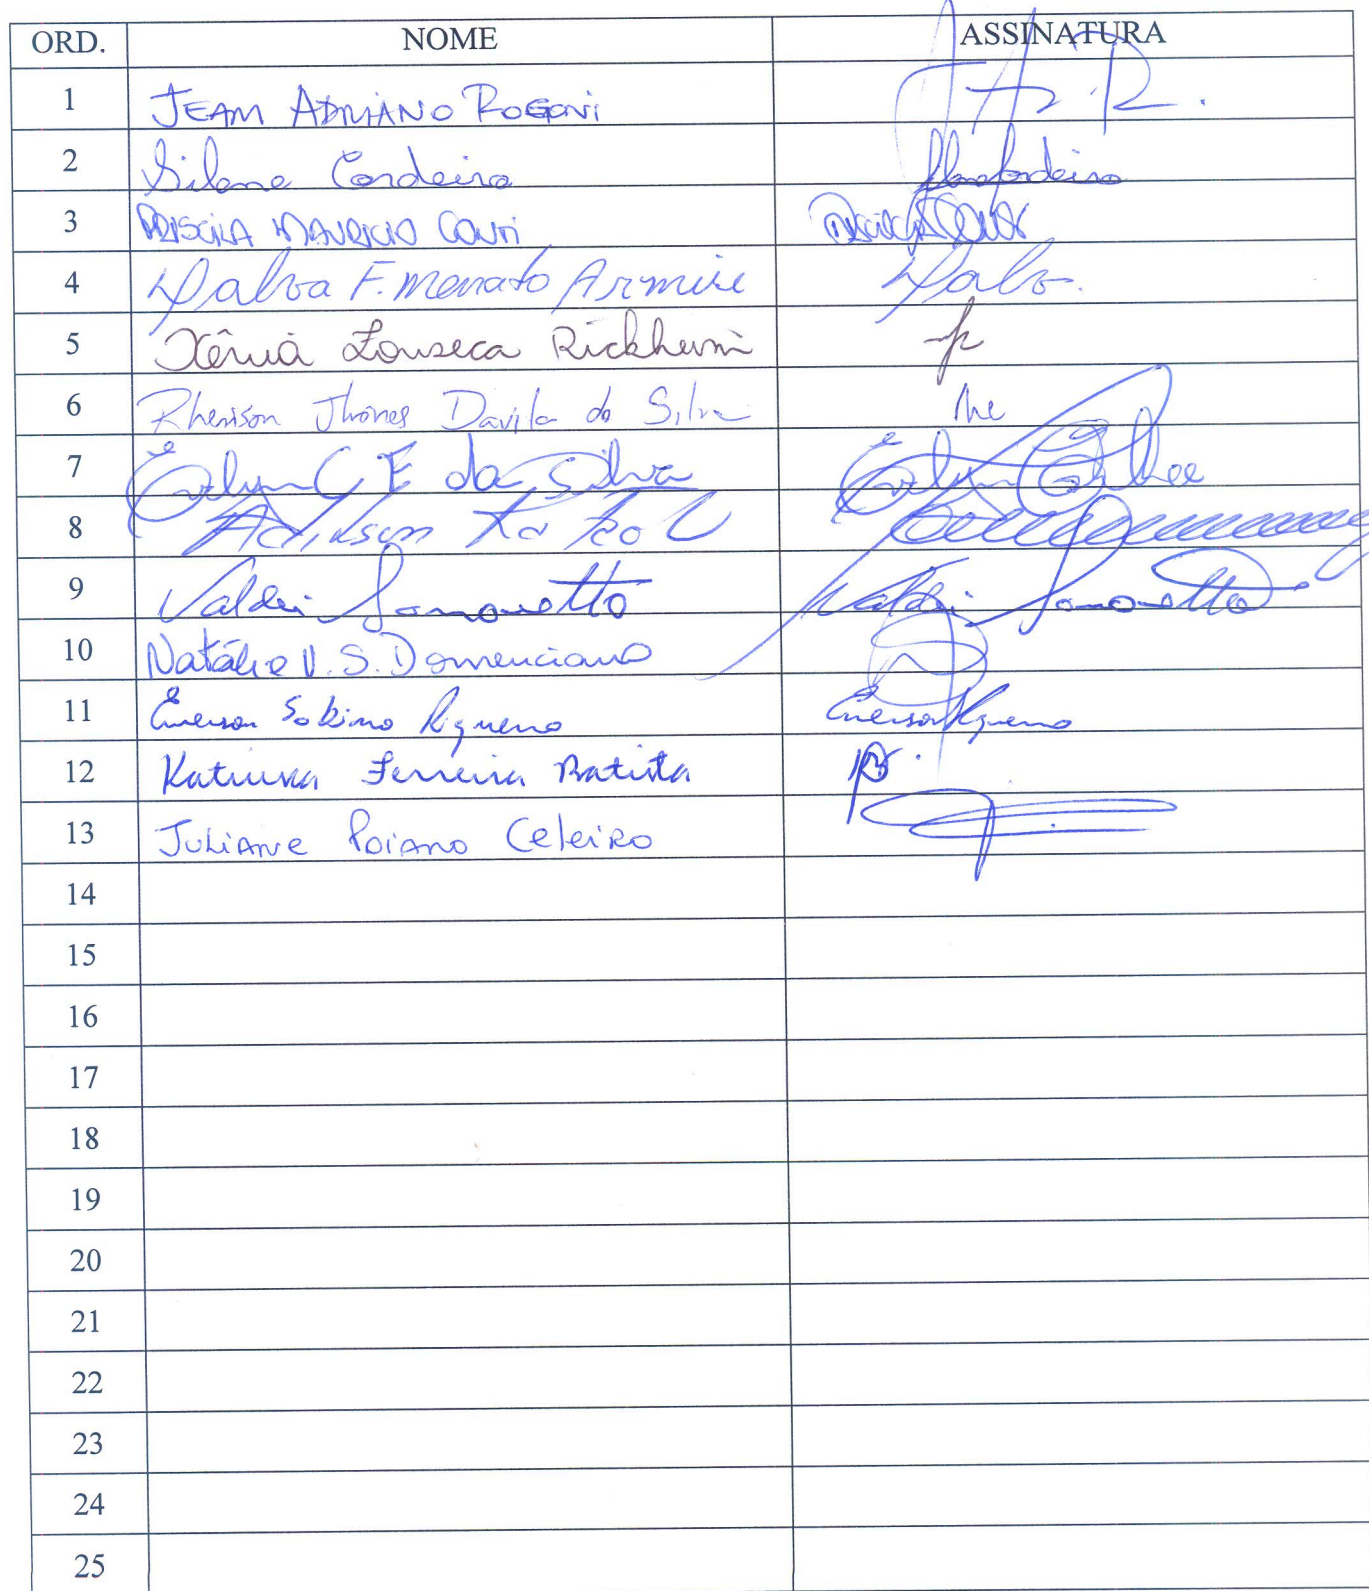 ORD. NOME ASSINATURA
1 JEAM ADRIANO ROGONI
2 Silene Cordeiro
3 PRISCILA MAURICIO CONTI
4 Dalva F. Menato Armire Dalv.
5 Xênia Fonseca Rickherm
6 Rhenison Jhones Davila da Silva
7 Evelyn C. F. da Silva Evelyn
8 Adilson
9 Valdei Samonetto Valdei Samonetto
10 Natália V. S. Domenciano
11 Emerson Sabino Rigueno Emerson Rigueno
12 Katiuva Ferreira Batista
13 JULIANE POIANO CELEIRO
14
15
16
17
18
19
20
21
22
23
24
25